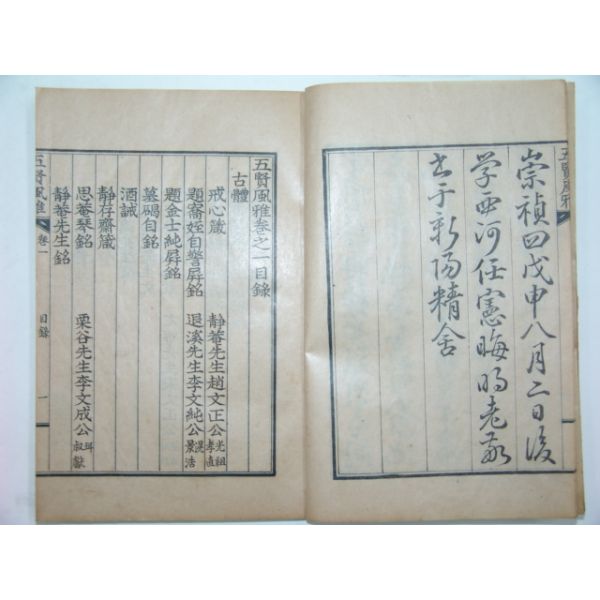 五賢風雅
崇禎四戊申八月二日後
学西河任憲晦鳴老敬
书于新陽精舍
五賢風雅叁之一目錄
古體
戒心箴 靜菴先生趙文正公 光祖 孝直
題審姪自警屛銘 退溪先生李文純公 滉 景浩
題金士純屛銘
墓碣自銘
酒誡
靜存齋箴
思菴琴銘 栗谷先生李文成公 珥 叔獻
靜菴先生銘
五賢風雅 卷一 目錄 一